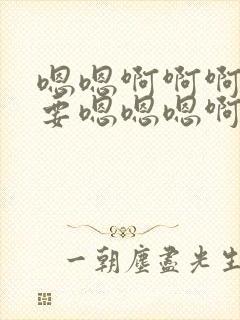 嗯嗯啊啊啊
要嗯嗯嗯啊
一朝尘尽光生